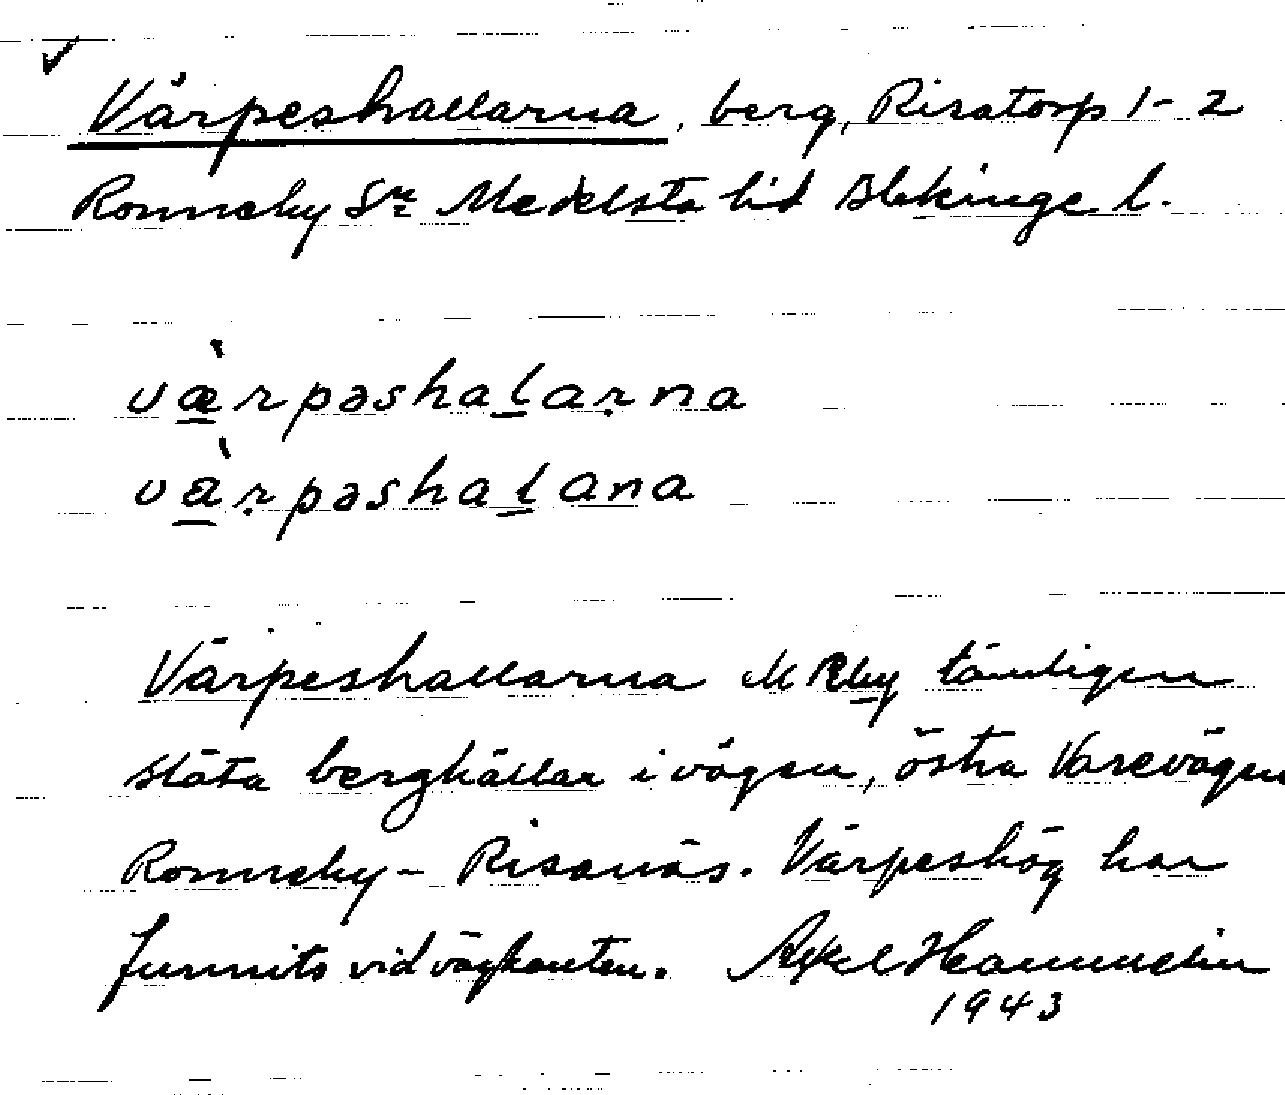 Värpeshallarna, berg, Risatorp 1-2
Ronneby Sn Medelsta hd Blekinge l.
væ̀rpəshalarna
vàrpəshalana
Värpeshallarna tämligen
släta berghällar i vägen, östra Varevägen
Ronneby - Risanäs. Värpeshög har
funnits vid vägkanten. Axel Hammelin
1943